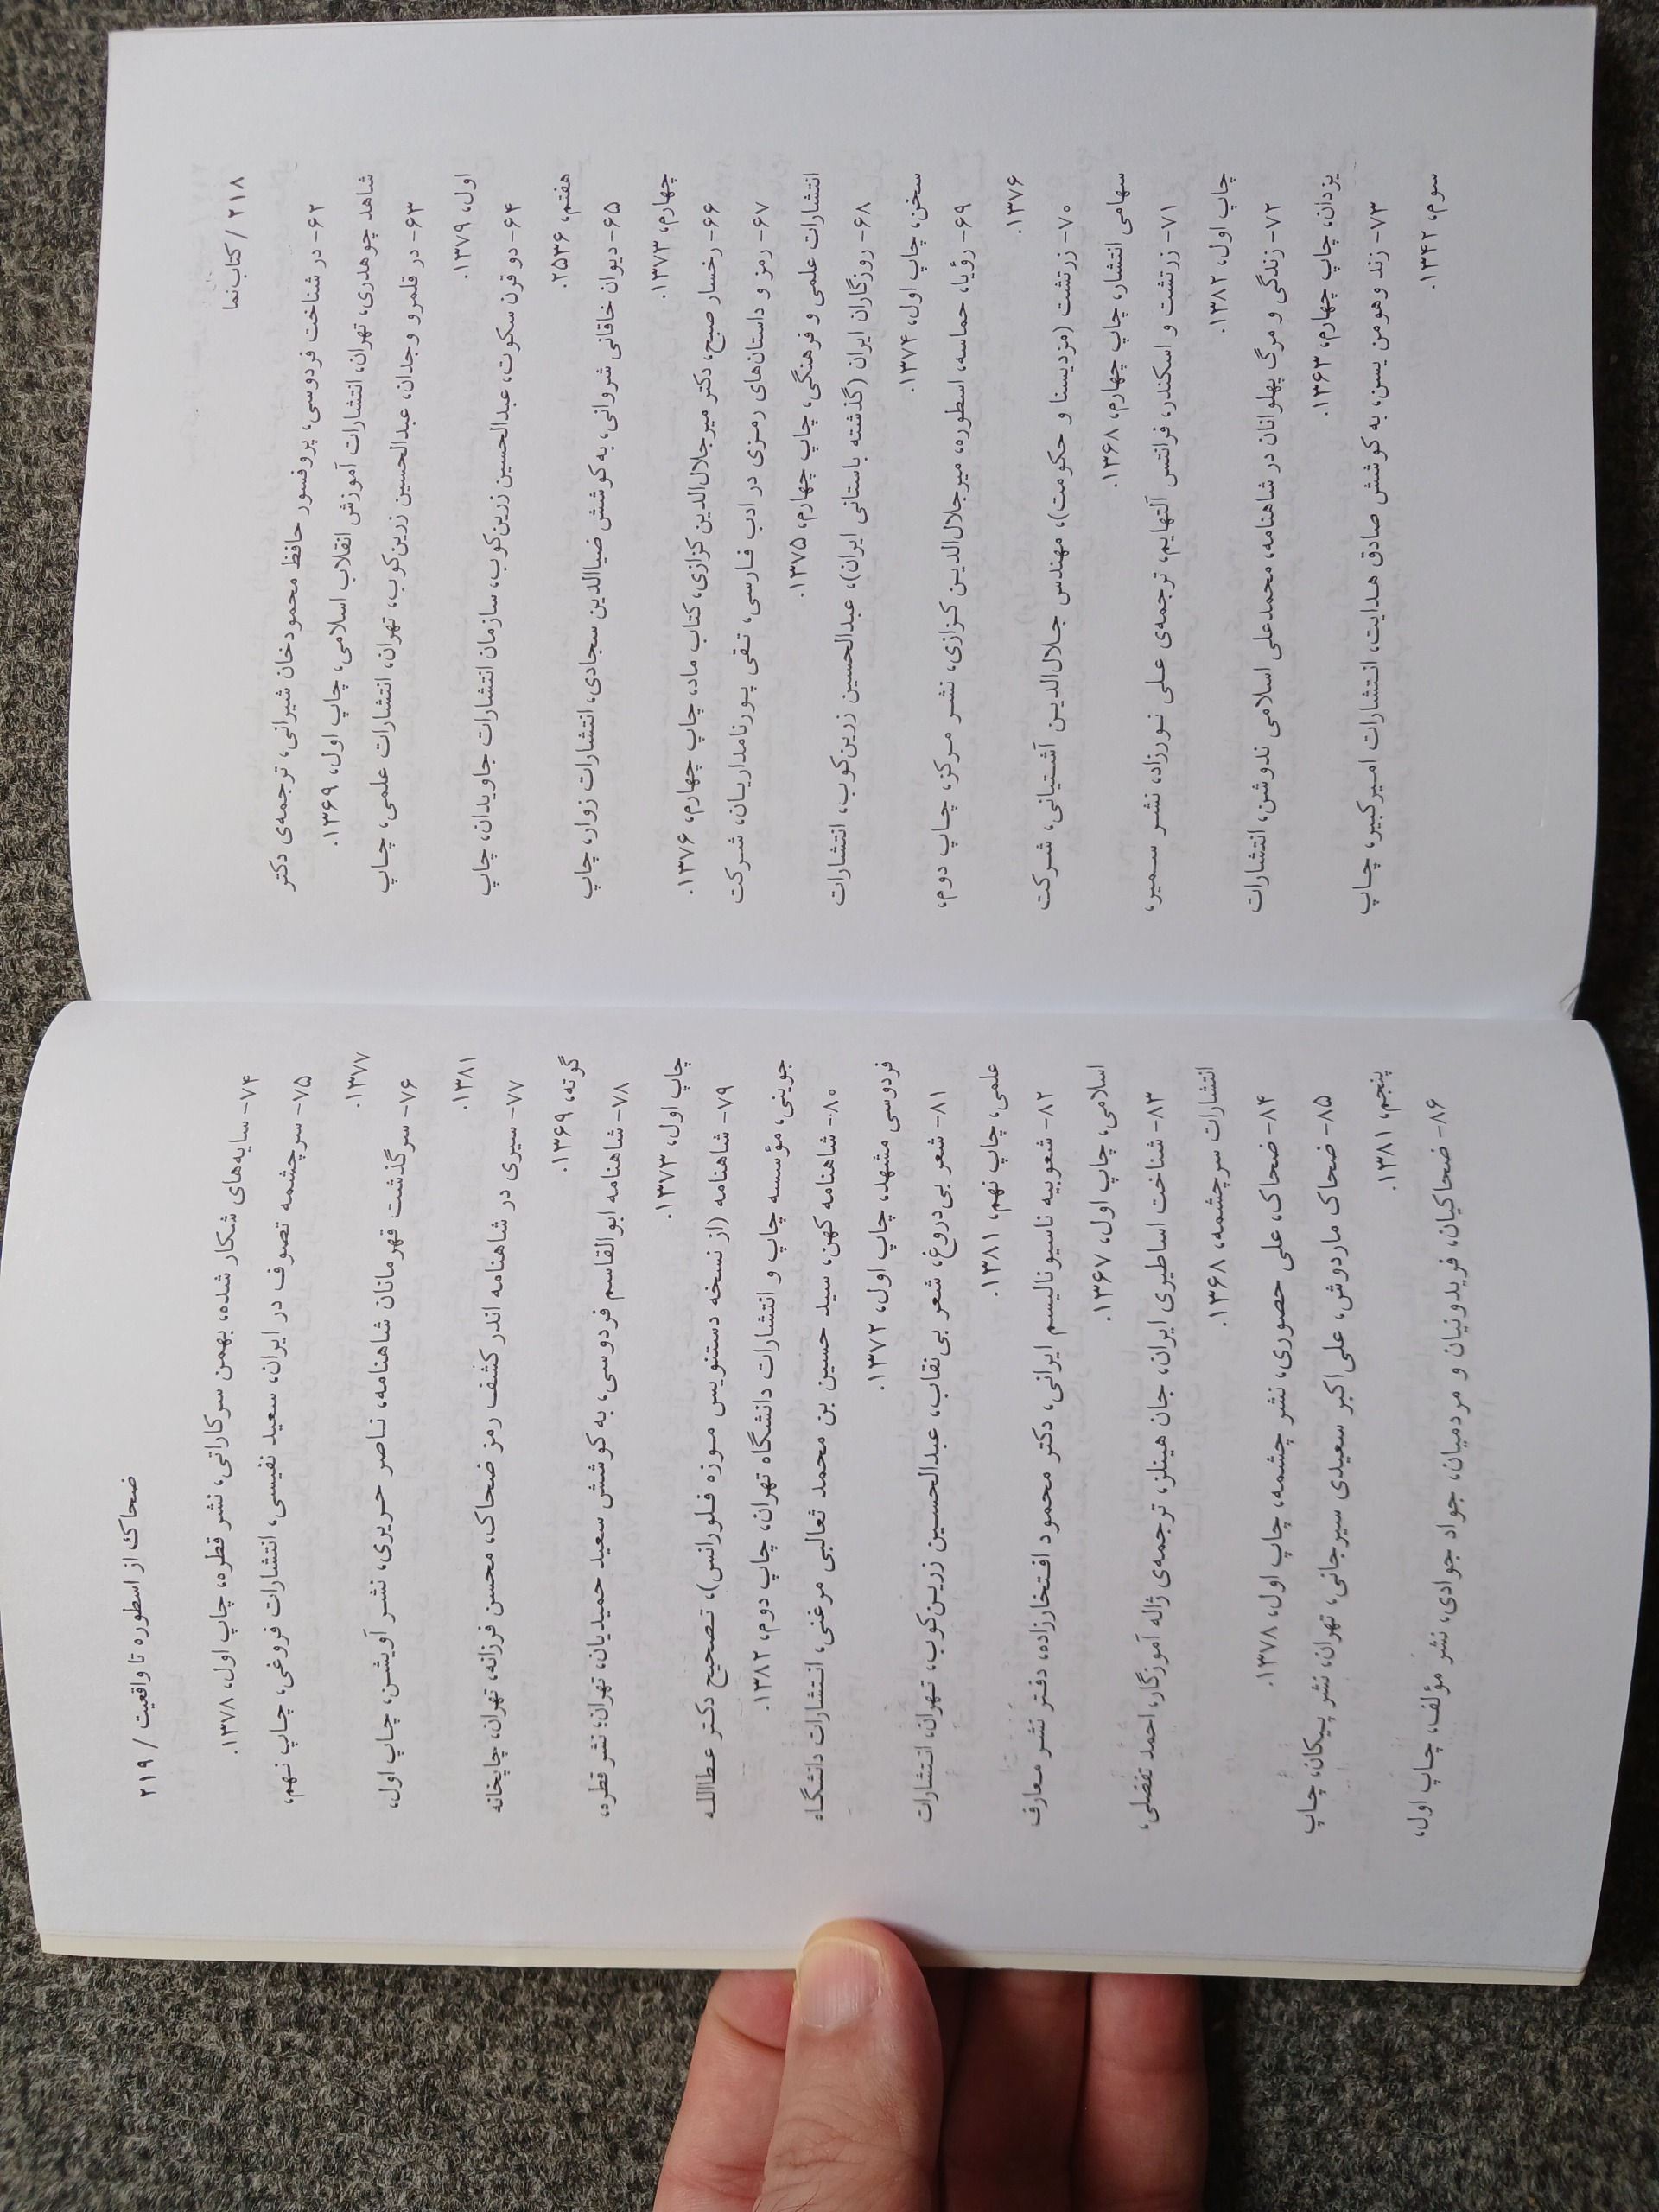 ۲۱۸ / کتاب‌نما
۶۲- در شناخت فردوسی، پروفسور حافظ محمودخان شیرانی، ترجمه‌ی دکتر
شاهد چوهدری، تهران، انتشارات آموزش انقلاب اسلامی، چاپ اول، ۱۳۶۹.
۶۳- در قلمرو وجدان، عبدالحسین زرین‌کوب، تهران، انتشارات علمی، چـاپ
اول، ۱۳۷۹.
۶۴- دو قرن سکوت، عبدالحسین زرین‌کوب، سازمان انتشارات جاویدان، چاپ
هفتم، ۲۵۳۶.
۶۵- دیوان خاقانی شروانی، به کوشش ضیاالدین سجادی، انتشارات زوار، چاپ
چهارم، ۱۳۷۳.
۶۶- رخسار صبح، دکتر میرجلال‌الدین کزازی، کتاب ماد، چاپ چهارم، ۱۳۷۶.
۶۷- رمز و داستان‌های رمـزی در ادب فـارسی، تـقی پـورنامداریـان، شـرکت
انتشارات علمی و فرهنگی، چاپ چهارم، ۱۳۷۵.
۶۸- روزگاران ایران (گذشته باستانی ایران)، عبدالحسین زرین‌کوب، انتشارات
سخن، چاپ اول، ۱۳۷۴.
۶۹- رؤیا، حماسه، اسطوره، میرجلال‌الدیـن کـزازی، نشـر مـرکز، چـاپ دوم،
۱۳۷۶.
۷۰- زرتشت (مزدیسنا و حکومت)، مهندس جـلال‌الدیـن آشـتیانی، شـرکت
سهامی انتشار، چاپ چهارم، ۱۳۶۸.
۷۱- زرتشت و اسکندر، فرانتس آلتهایم، ترجمه‌ی عـلی نـورزاد، نشـر سـمیر،
چاپ اول، ۱۳۸۲.
۷۲- زندگی و مرگ پهلوانان در شاهنامه، محمدعلی اسلامی ندوشن، انتشارات
یزدان، چاپ چهارم، ۱۳۶۳.
۷۳- زند وهومن یسن، به کوشش صادق هـدایت، انـتشارات امـیرکبیر، چـاپ
سوم، ۱۳۴۲.
ضحاک از اسطوره تا واقعیت / ۲۱۹
۷۴- سایه‌های شکار شده، بهمن سرکاراتی، نشر قطره، چاپ اول، ۱۳۷۸.
۷۵- سرچشمه تصوف در ایران، سعید نفیسی، انتشارات فروغی، چـاپ نـهم،
۱۳۷۷.
۷۶- سرگذشت قهرمانان شاهنامه، نـاصر حـریری، نشـر آویشـن، چـاپ اول،
۱۳۸۱.
۷۷- سیری در شاهنامه اندر کشف رمز ضحاک، محسن فرزانه، تهران، چاپخانه
گوته، ۱۳۶۹.
۷۸- شاهنامه ابوالقاسم فردوسی، به کوشش سعید حمیدیان، تهران؛ نشر قطره،
چاپ اول، ۱۳۷۳.
۷۹- شاهنامه (از نسخه دستنویس مـوزه فـلورانس)، تـصحیح دکـتر عـطااللـه
جوینی، مؤسسه چاپ و انتشارات دانشگاه تهران، چاپ دوم، ۱۳۸۲.
۸۰- شاهنامه کهن، سید حسین بن محمد ثعالبی مرغنی، انـتشارات دانشگـاه
فردوسی مشهد، چاپ اول، ۱۳۷۲.
۸۱- شعر بی‌دروغ، شعر بی‌نقاب، عبدالحسـین زریـن‌کوب، تـهران، انـتشارات
علمی، چاپ نهم، ۱۳۸۱.
۸۲- شعوبیه ناسیونالیسم ایرانی، دکتر محمود افـتخارزاده، دفـتر نشـر مـعارف
اسلامی، چاپ اول، ۱۳۶۷.
۸۳- شناخت اساطیری ایران، جان هینلز، ترجمه‌ی ژاله آموزگار، احمد تفضلی،
انتشارات سرچشمه، ۱۳۶۸.
۸۴- ضحاک، علی حصوری، نشر چشمه، چاپ اول، ۱۳۷۸.
۸۵- ضحاک ماردوش، علی‌اکبر سعیدی سیرجانی، تهران، نشر پیکان، چاپ
پنجم، ۱۳۸۱.
۸۶- ضحاکیان، فریدونیان و مردمیان، جواد جوادی، نشر مؤلف، چـاپ اول،